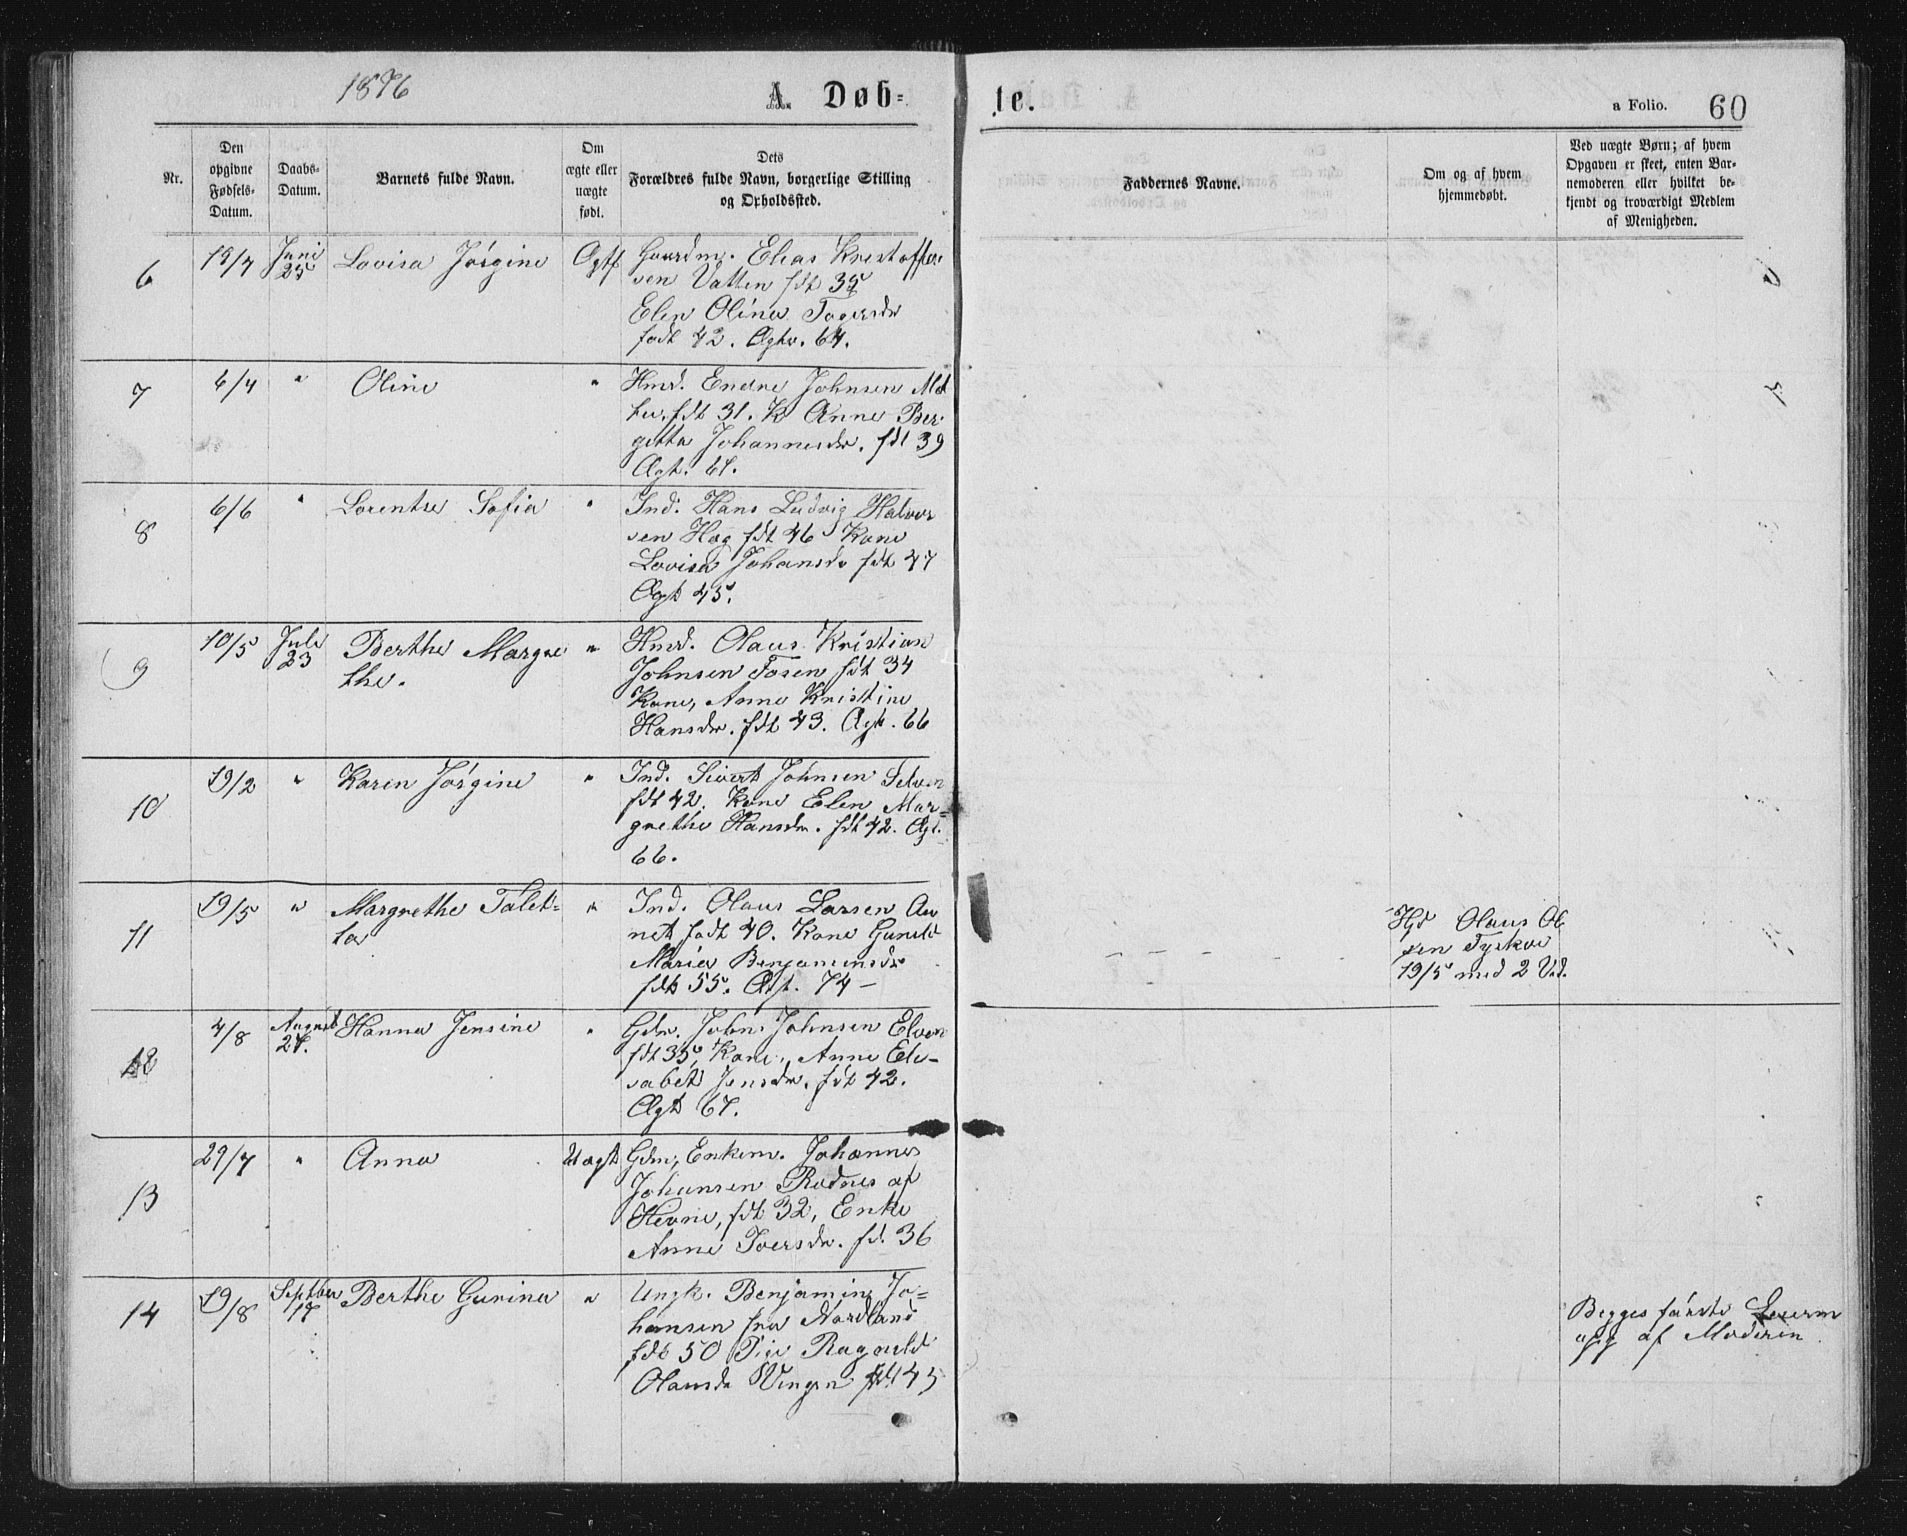 1876
A. Døb-
te.
a Folio.
60
Nr.
Den opgivne Fødsels-Datum.
Daabs-Datum.
Barnets fulde Navn.
Om ægte eller uægte født.
Dets Forældres fulde Navn, borgerlige Stilling og Opholdssted.
Faddernes Navne.
Om og af hvem hjemmedøbt.
Ved uægte Børn; af hvem Opgaven er skeet, enten Barnemoderen eller hvilket bekjendt og troværdigt Medlem af Menigheden.
6 13/4 Juni 25 Lovisa Jørgine Ægte Gaardm. Elias Kristoffer
sen Vatten fdt 35
Elen Olina
født 42. Ægtv. 64.
7 6/4 " Oline " Hmd. Endre Johnsen
fdt 31. K Anne Ber
gitta Johannesdr. fdt 39
Ægt. 67.
8 6/6 " Lorentse Sofia " Ind. Hans Ludvig Halvor
sen Hag fdt 46 Kone
Lovisa Johansdr fdt 47
Ægt 75.
9 10/5 Juli 23 Berthe Margre " Hmd. Olaus Kristian
the. Johnsen Fosen fdt 34
Kone, Anne Kristine
Hansdr. fdt 43. Ægt. 66
10 19/2 " Karen Jørgine " Ind. Sivert Johnsen Selven
fdt 42. Kone Elen Mar-
grethe Hansdr. fdt 42. Ægt.
66.
11 19/5 " Margrethe Talet- " Ind. Olaus Larsen Au
ta net født 40. Kone Gunild
Maria Benjaminsdr
fdt 55. Ægt. 74 –
Hjd Olaus Ol
sen Tyskø
19/5 med 2 Vid.
12 4/8 August 27. Hanna Jensine " Gdm. John Johnsen Elven
fdt 35, Kone, Anne Eli-
sabet Jensdr. fdt 42.
Ægt 67.
13 29/7 " Anna Uægt Gdm, Enkem. Johannes
Johansen Rødnes af
Hevne, fdt 32, Enke
Anne Iversdr. fd. 36
14 19/8 Septber 17 Berthe Gurina " Ungk. Benjamin Jo-
hansen fra Nordland
fdt 50 Pige Ragnild
Olausdr Vingen fdt 45
Begges første Leierm
opg af Moderen